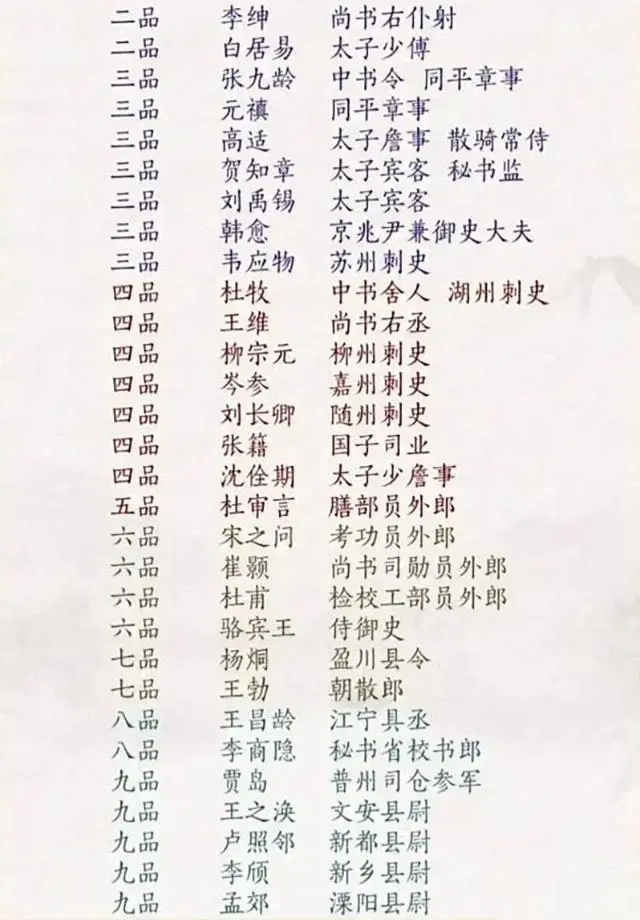 二品 李绅 尚书右仆射
二品 白居易 太子少傅
三品 张九龄 中书令 同平章事
三品 元禛 同平章事
三品 高适 太子詹事 散骑常侍
三品 贺知章 太子宾客 秘书监
三品 刘禹锡 太子宾客
三品 韩愈 京兆尹兼御史大夫
三品 韦应物 苏州刺史
四品 杜牧 中书舍人 湖州刺史
四品 王维 尚书右丞
四品 柳宗元 柳州刺史
四品 岑参 嘉州刺史
四品 刘长卿 随州刺史
四品 张籍 国子司业
四品 沈佺期 太子少詹事
五品 杜审言 膳部员外郎
六品 宋之问 考功员外郎
六品 崔颢 尚书司勋员外郎
六品 杜甫 检校工部员外郎
六品 骆宾王 侍御史
七品 杨炯 盈川县令
七品 王勃 朝散郎
八品 王昌龄 江宁具丞
八品 李商隐 秘书省校书郎
九品 贾岛 普州司仓参军
九品 王之涣 文安县尉
九品 卢照邻 新都县尉
九品 李颀 新乡县尉
九品 孟郊 溧阳县尉